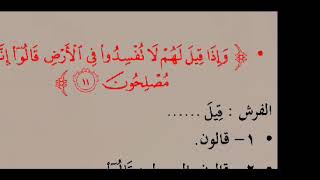 • ﴿ وَإِذَا قِيلَ لَهُمْ لَا تُفْسِدُوا۟ فِى ٱلْأَرْضِ قَالُوٓا۟
مُصْلِحُونَ ١١ ﴾
الفرش : قِيلَ ......
• ١- قالون.